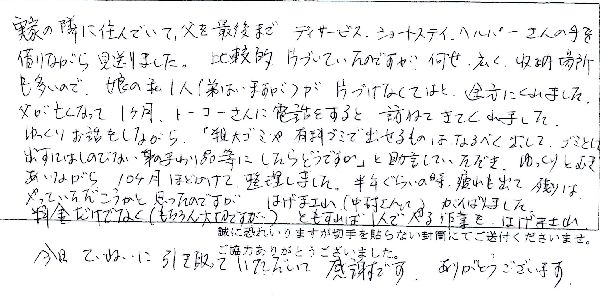 実家の隣に住んでいて、父を最後まで デイサービス、ショートステイ、ヘルパーさんの手を
借りながら 見送りました。 比較的 片づいていたのですが 何せ、広く、収納場所
も多いので、娘の私1人(弟はいますが)が 片づけなくてはと、途方にくれました。
父が亡くなって 1ヶ月、トーコーさんに電話をすると 訪ねてきてくれました。
ゆっくりお話をしながら、「粗大ゴミや 有料ゴミで出せるものは なるべく出して、ゴミとして
出すにはしのびない 身のまわり品等に したらどうですか」と助言していただき、ゆっくりと向き
あいながら 10ヶ月ほどかけて 整理しました。半年ぐらいの時、疲れも出て 残りは
やっていただこうかと 思ったのですが はげまされ(中村さんに) がんばりました。
料金だけでなく(もちろん大切ですが) ともすれば 1人でやる作業を、はげまされ
誠に恐れいりますが切手を貼らない封筒にてご送付くださいませ。
ご協力ありがとうございました。
今日 ていねいに 引き取って いただいて 感謝です。 ありがとうございます。